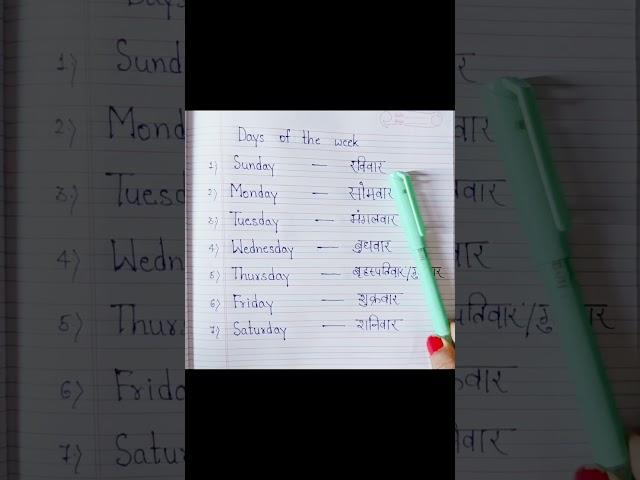 Days of the week
1) Sunday — रविवार
2) Monday — सोमवार
3) Tuesday — मंगलवार
4) Wednesday — बुधवार
5) Thursday — बृहस्पतिवार/गु वार
6) Friday — शुक्रवार
7) Saturday — शनिवार